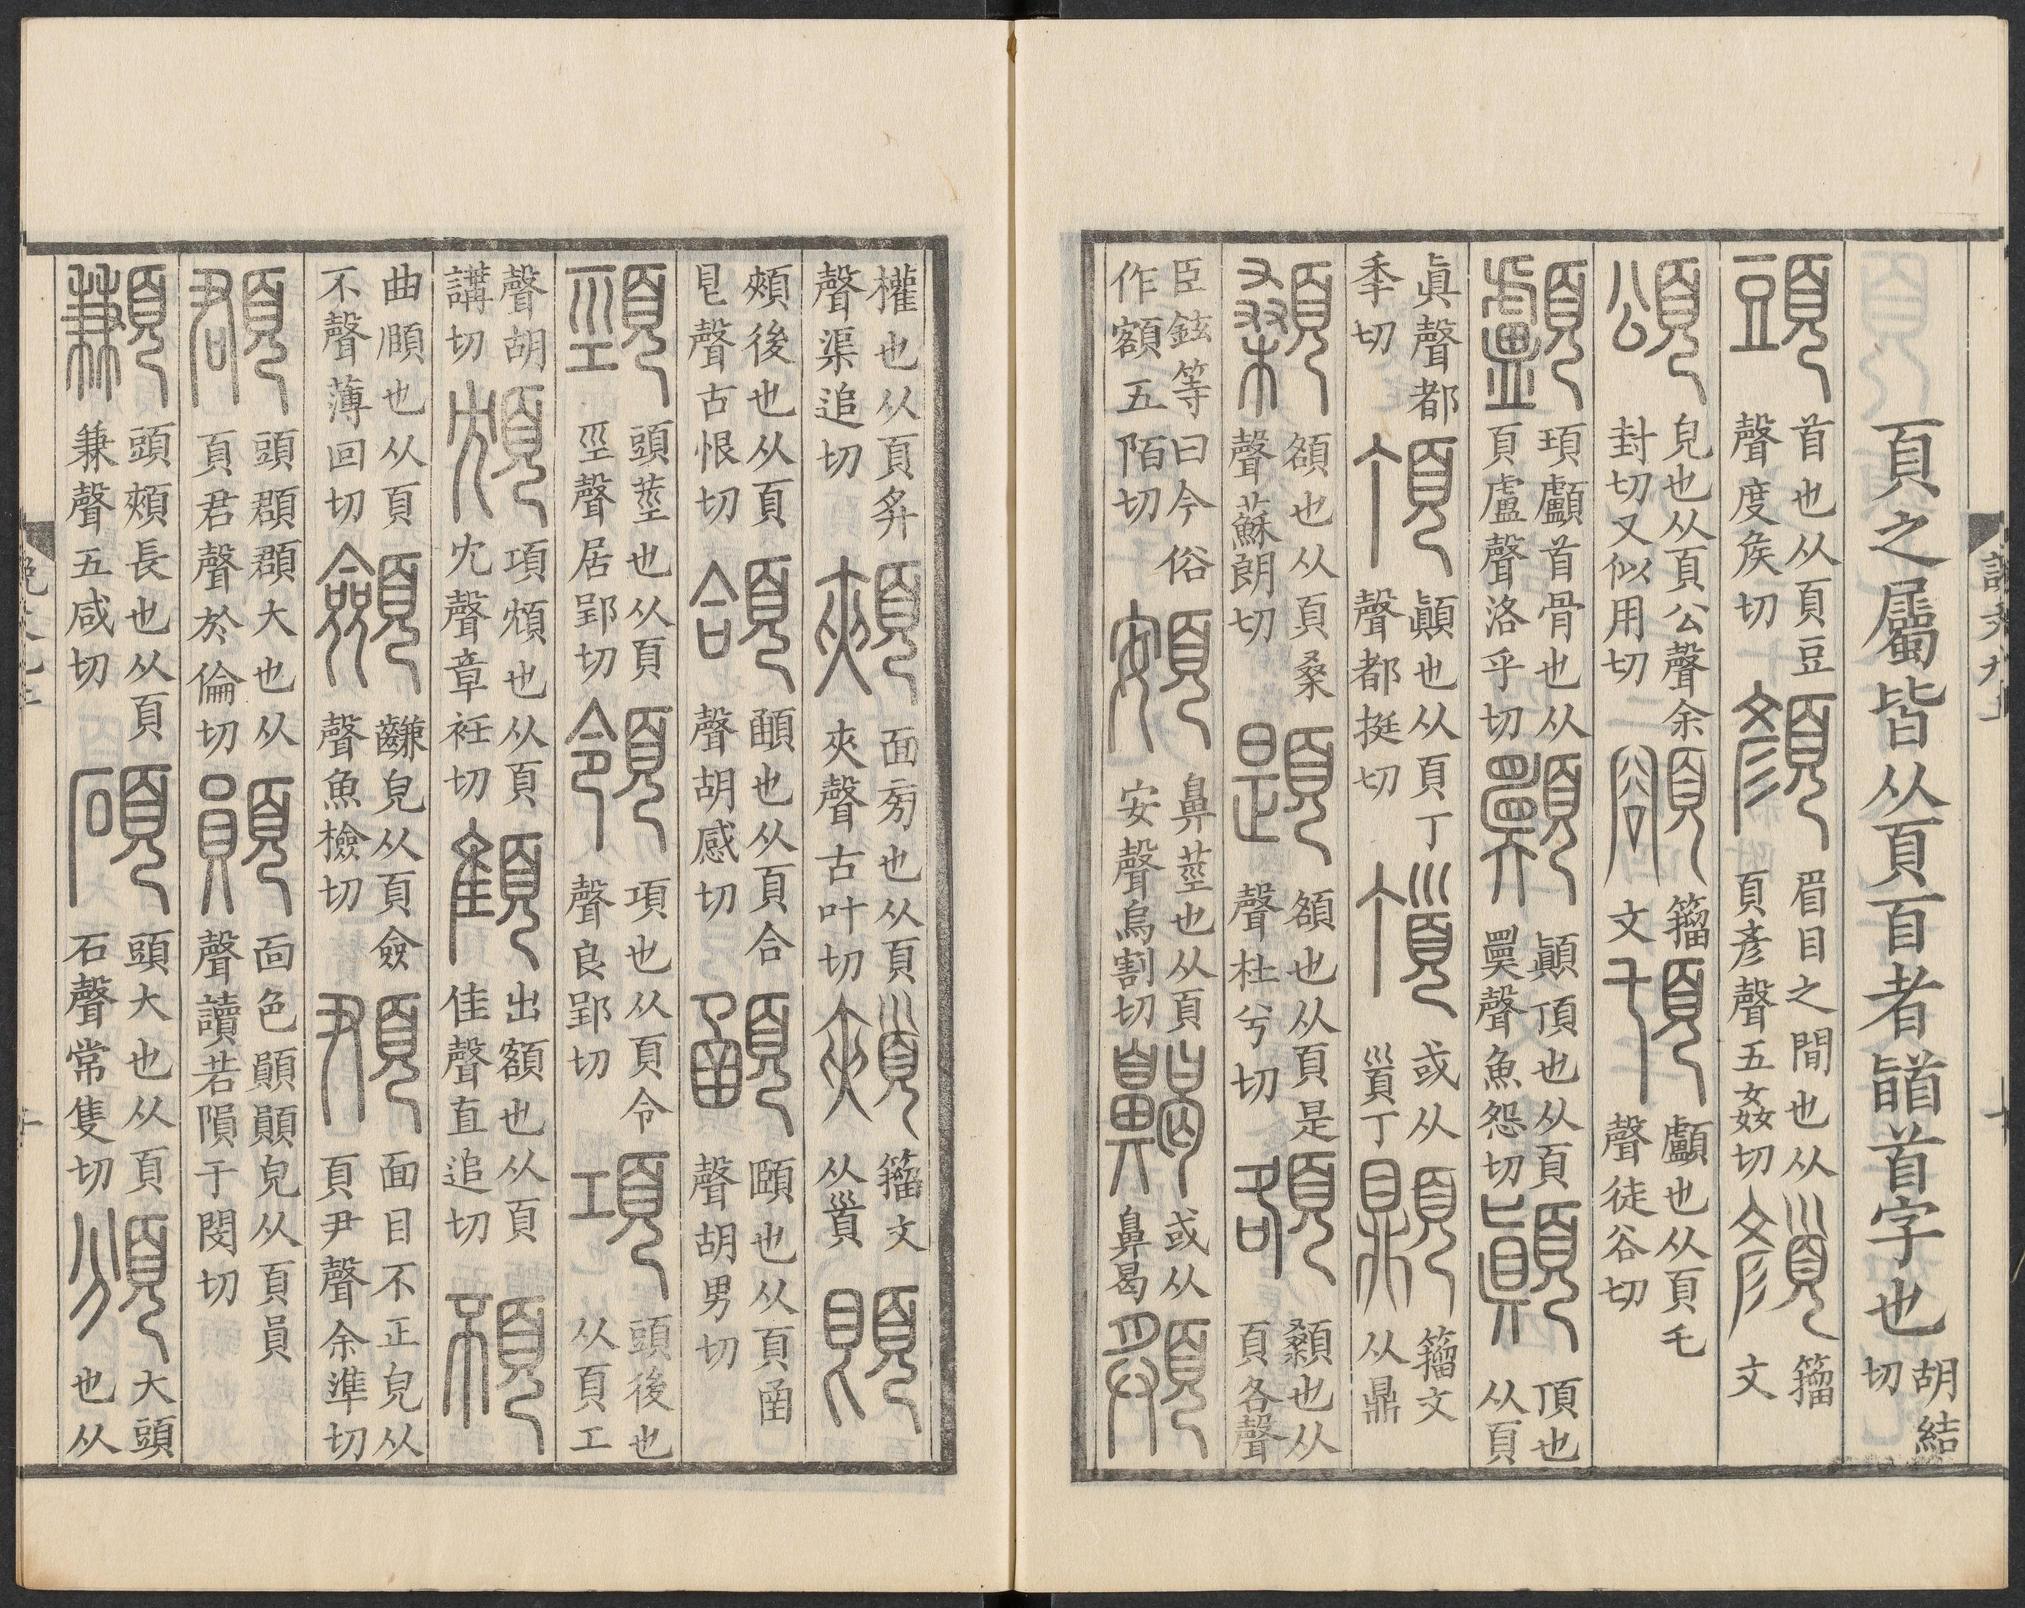 說文九上 十
頁之屬皆从頁𦣻者䭫首字也胡結切
頭首也从頁豆聲度矦切顔眉目之閒也从頁彦聲五姦切𩕝籒文
頌皃也从頁公聲余封切又似用切額籒文𩑒顱也从頁乇聲徒谷切
顱項顱首骨也从頁盧聲洛乎切顠顚頂也从頁㬱聲魚怨切顚頂也从頁
眞聲都秊切頂顚也从頁丁聲都挺切𩠑或从𩠐丁𩕢籒文从鼎
顙頟也从頁桑聲蘇朗切題頟也从頁是聲杜兮切頟顙也从頁各聲
臣鉉等曰今俗作額五陌切頞鼻莖也从頁安聲烏割切齃或从鼻曷頯
權也从頁𢌳聲渠追切頰面旁也从頁夾聲古叶切𩠣籒文从𩠐頣
頰後也从頁𣅀聲古恨切頜顄也从頁合聲胡感切顄頤也从頁圅聲胡男切
頸頭莖也从頁巠聲居郢切領項也从頁令聲良郢切項頭後也从頁工
聲胡講切𩑞項𩑞也从頁冘聲章衽切顀出額也从頁隹聲直追切䫠
曲頤也从頁不聲薄回切顩䶢皃从頁僉聲魚檢切𩒛面目不正皃从頁尹聲余準切
頵頭頵頵大也从頁君聲於倫切䫟面色䫟䫟皃从頁員聲讀若隕于閔切
䫡頭頰長也从頁兼聲五咸切碩頭大也从頁石聲常隻切頒大頭也从